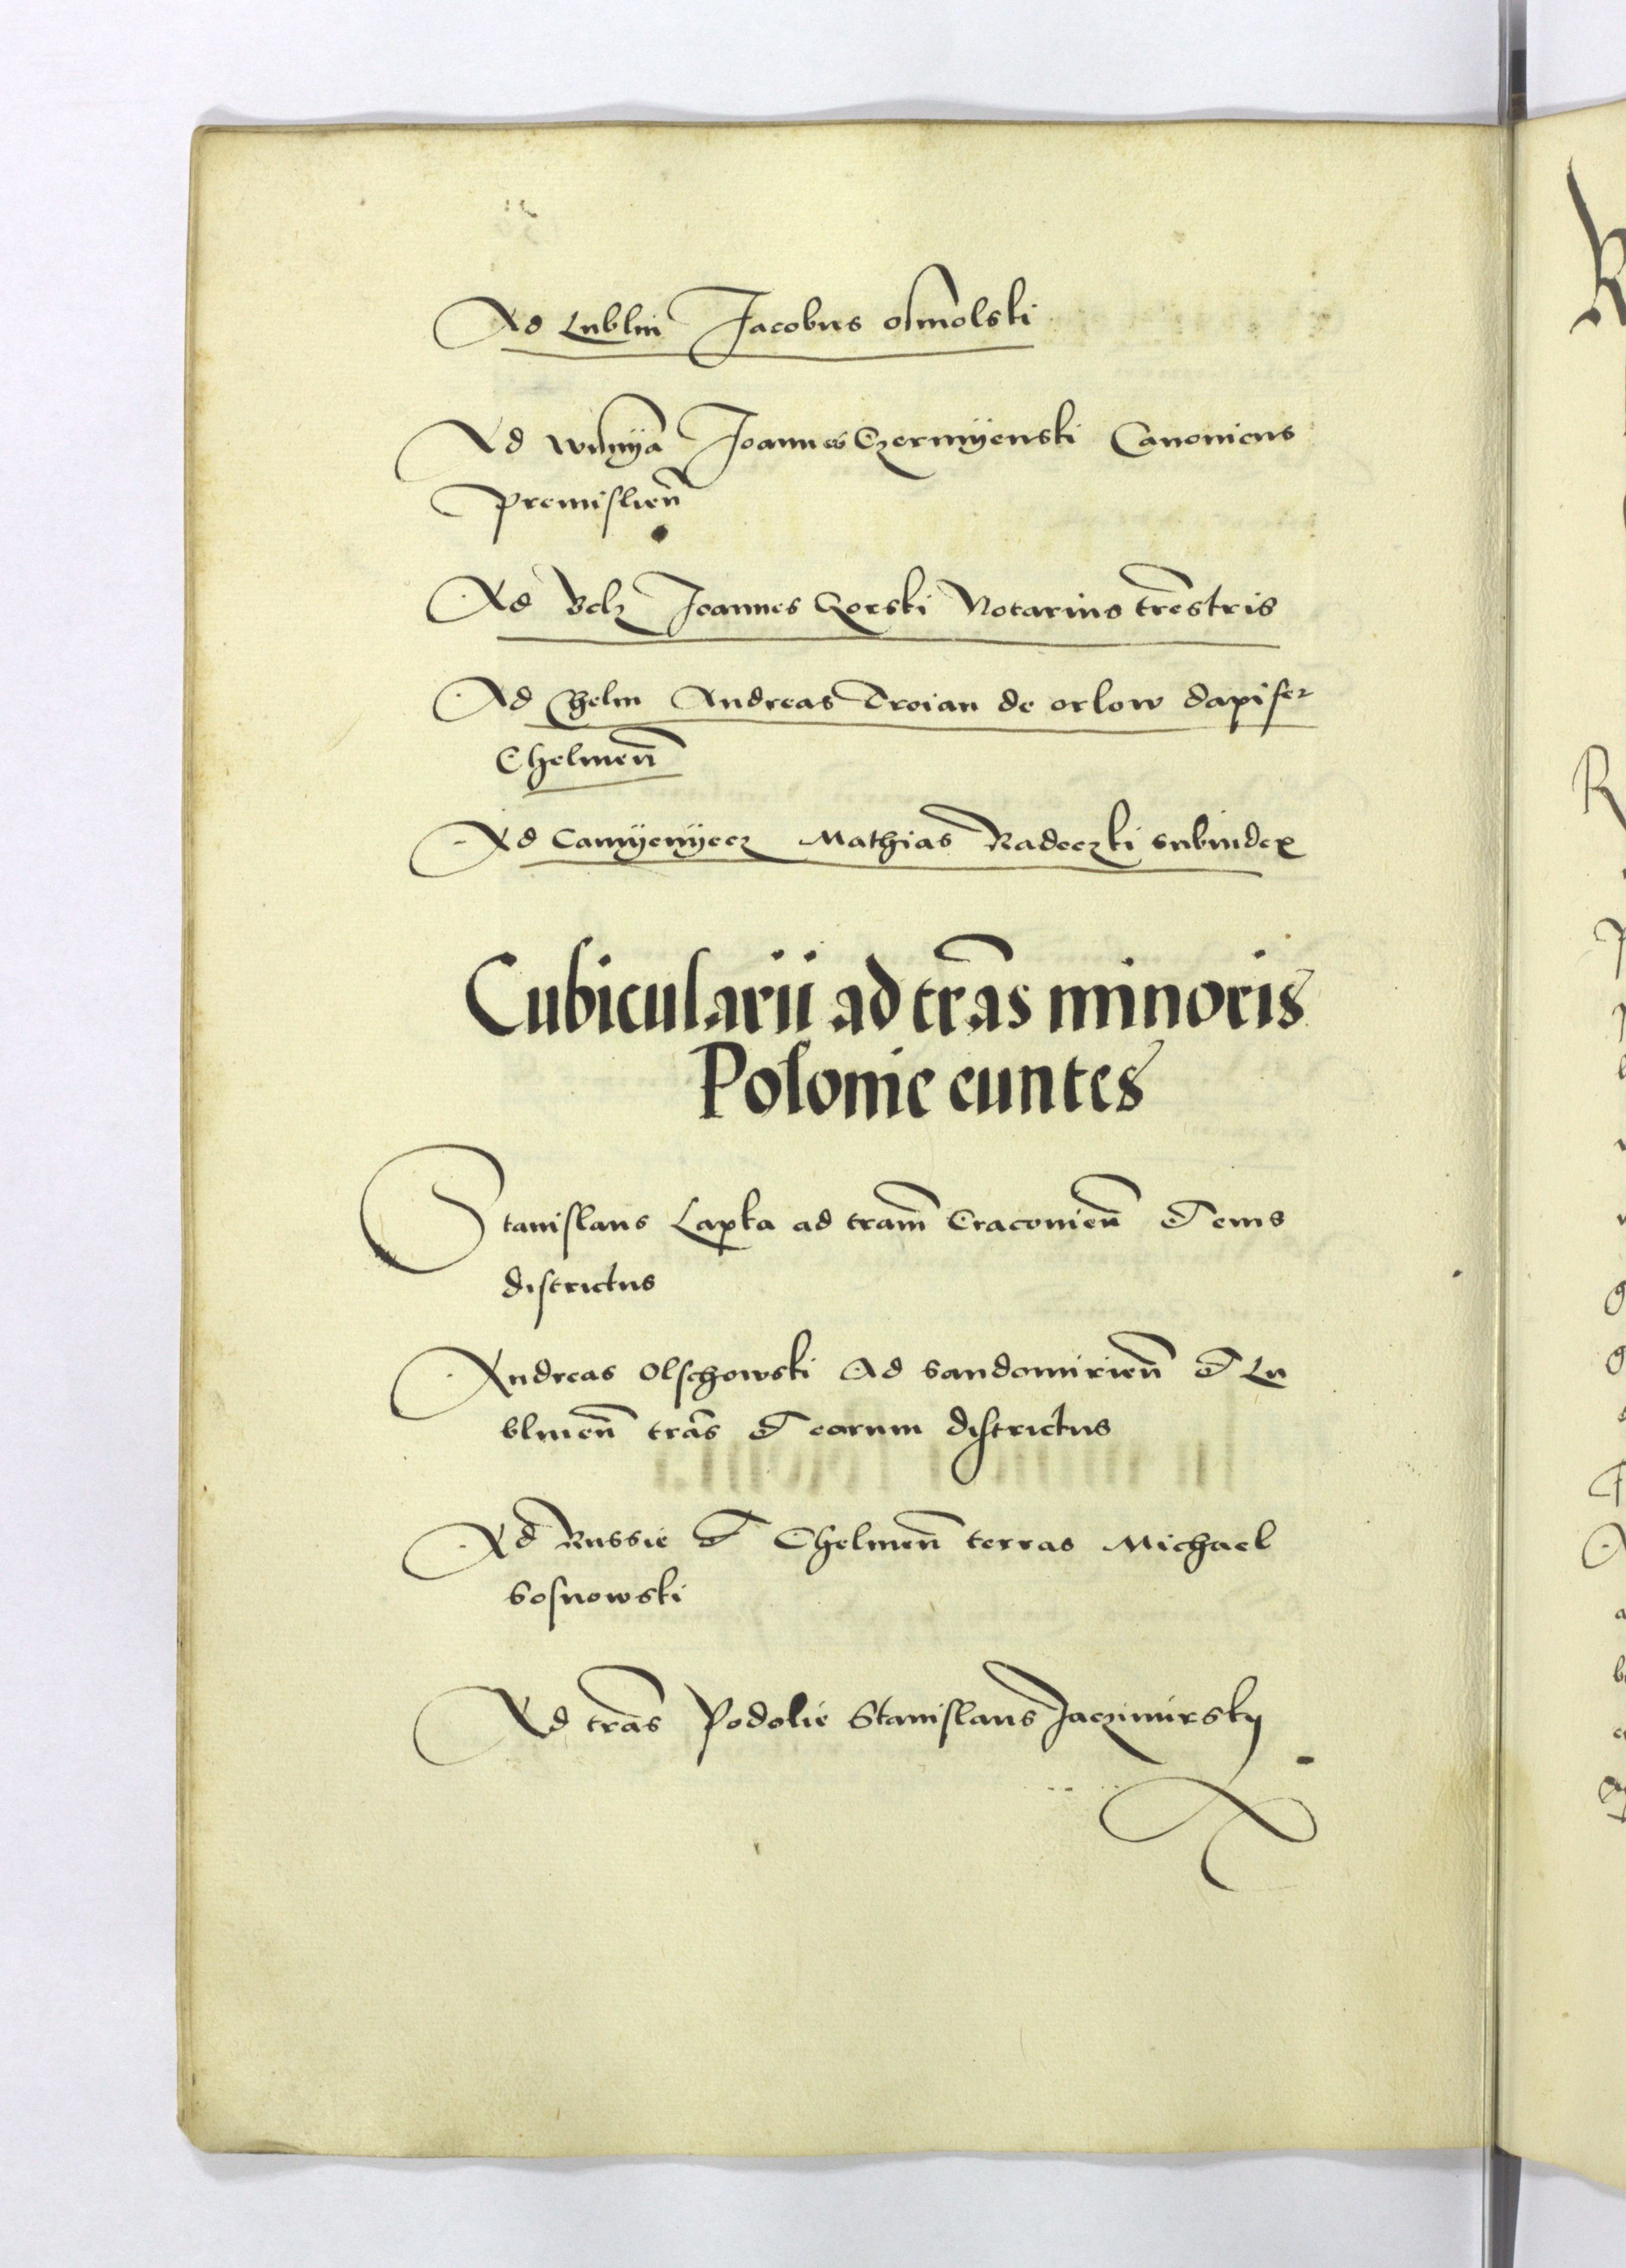 Ad Lublin Jacobus osmolski
Ad wisnya Joannes Czermyenski Canonicus
premislien̄
Ad Belz Joannes Gorski Notarius tr̄estris
Ad Chelm Andreas Troian de orlow dapifer
Chelmen̄
Ad Camyenyecz Mathias Radeczki subiudex
Cubicularii ad tr̄as minoris
Polonie euntes
Stanislaus Lapka ad tram̄ Cracovien̄ et eius
districtus
Andreas Olschowski Ad Sandomirien̄ et Lu
blinen̄ trās et earum districtus
Ad Russie et Chelmen̄ terras Michael
Sosnowski
Ad trās Podolie Stanislaus Jaczimirsky